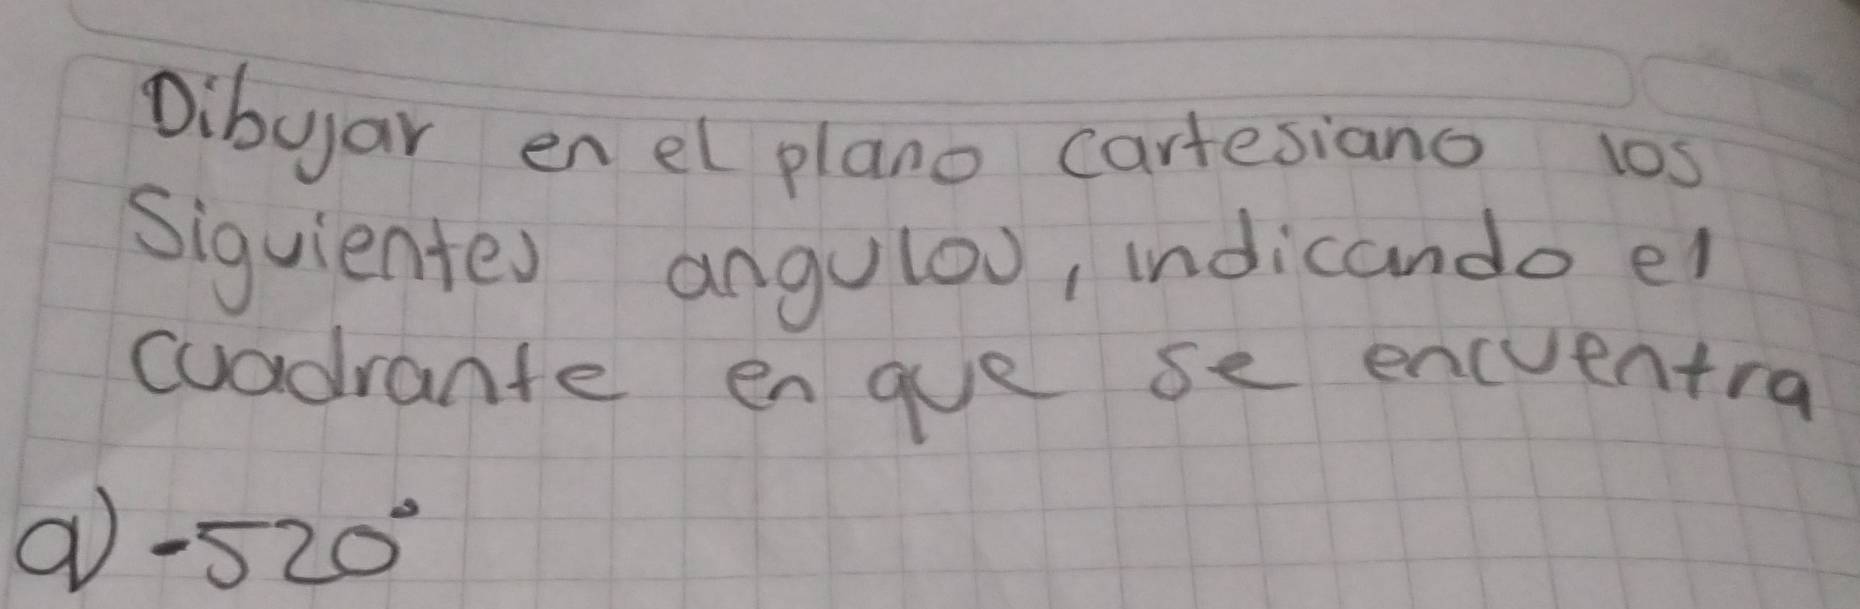 Dibujar en el plano cartesiano los
Siguientes angulos, indicando el
cuadrante en que se encuentra
a) -520°